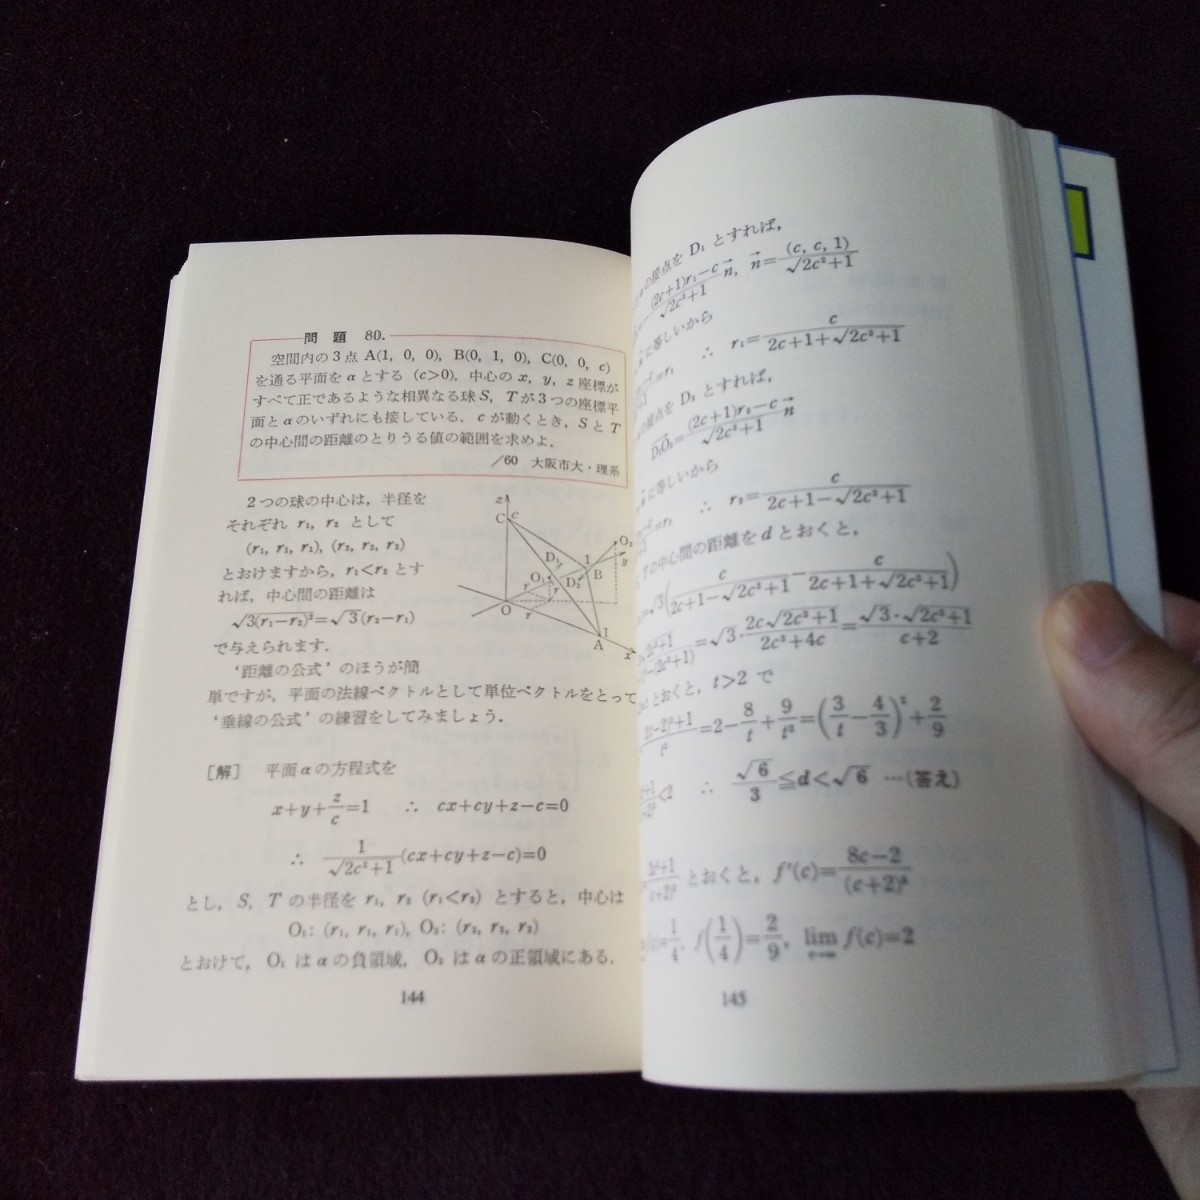 問題 80.
空間内の3点 A(1, 0, 0), B(0, 1, 0), C(0, 0, c)
を通る平面を α とする (c>0). 中心の x, y, z 座標が
すべて正であるような相異なる球 S, T が3つの座標平
面と α のいずれにも接している. c が動くとき, S と T
の中心間の距離のとりうる値の範囲を求めよ.
/60 大阪市大・理系
2つの球の中心は, 半径を
それぞれ r₁, r₂ として
(r₁, r₁, r₁), (r₂, r₂, r₂)
とおけますから, r₁<r₂ とす
れば, 中心間の距離は
√3(r₁−r₂)²=√3(r₂−r₁)
で与えられます.
‘距離の公式’のほうが簡
単ですが, 平面の法線ベクトルとして単位ベクトルをとって
‘垂線の公式’の練習をしてみましょう.
z
C c
D₁
1
O₂
y
O₁
D₂
B
r
r
O
r
1
A
x
[解] 平面 α の方程式を
x+y+z/c=1 ∴ cx+cy+z−c=0
∴ 1/√2c²+1 (cx+cy+z−c)=0
とし, S, T の半径を r₁, r₂ (r₁<r₂) とすると, 中心は
O₁: (r₁, r₁, r₁), O₂: (r₂, r₂, r₂)
とおけて, O₁ は α の負領域, O₂ は α の正領域にある.
144
の接点を D₁ とすれば,
(2c+1)r₁−c/√2c²+1 n⃗, n⃗=(c, c, 1)/√2c²+1
に等しいから
=r₁ ∴ r₁=c/2c+1+√2c²+1
の接点を D₂ とすれば,
D₂O₂=(2c+1)r₂−c/√2c²+1 n⃗
に等しいから
=r₂ ∴ r₂=c/2c+1−√2c²+1
の中心間の距離を d とおくと,
=√3(c/2c+1−√2c²+1 − c/2c+1+√2c²+1)
=√3·2c√2c²+1/2c²+4c=√3·√2c²+1/c+2
とおくと, t>2 で
=2−8/t+9/t²=(3/t−4/3)²+2/9
<2 ∴ √6/3≦d<√6 …(答え)
とおくと, f'(c)=8c−2/(c+2)³
=1/4, f(1/4)=2/9, lim f(c)=2
145